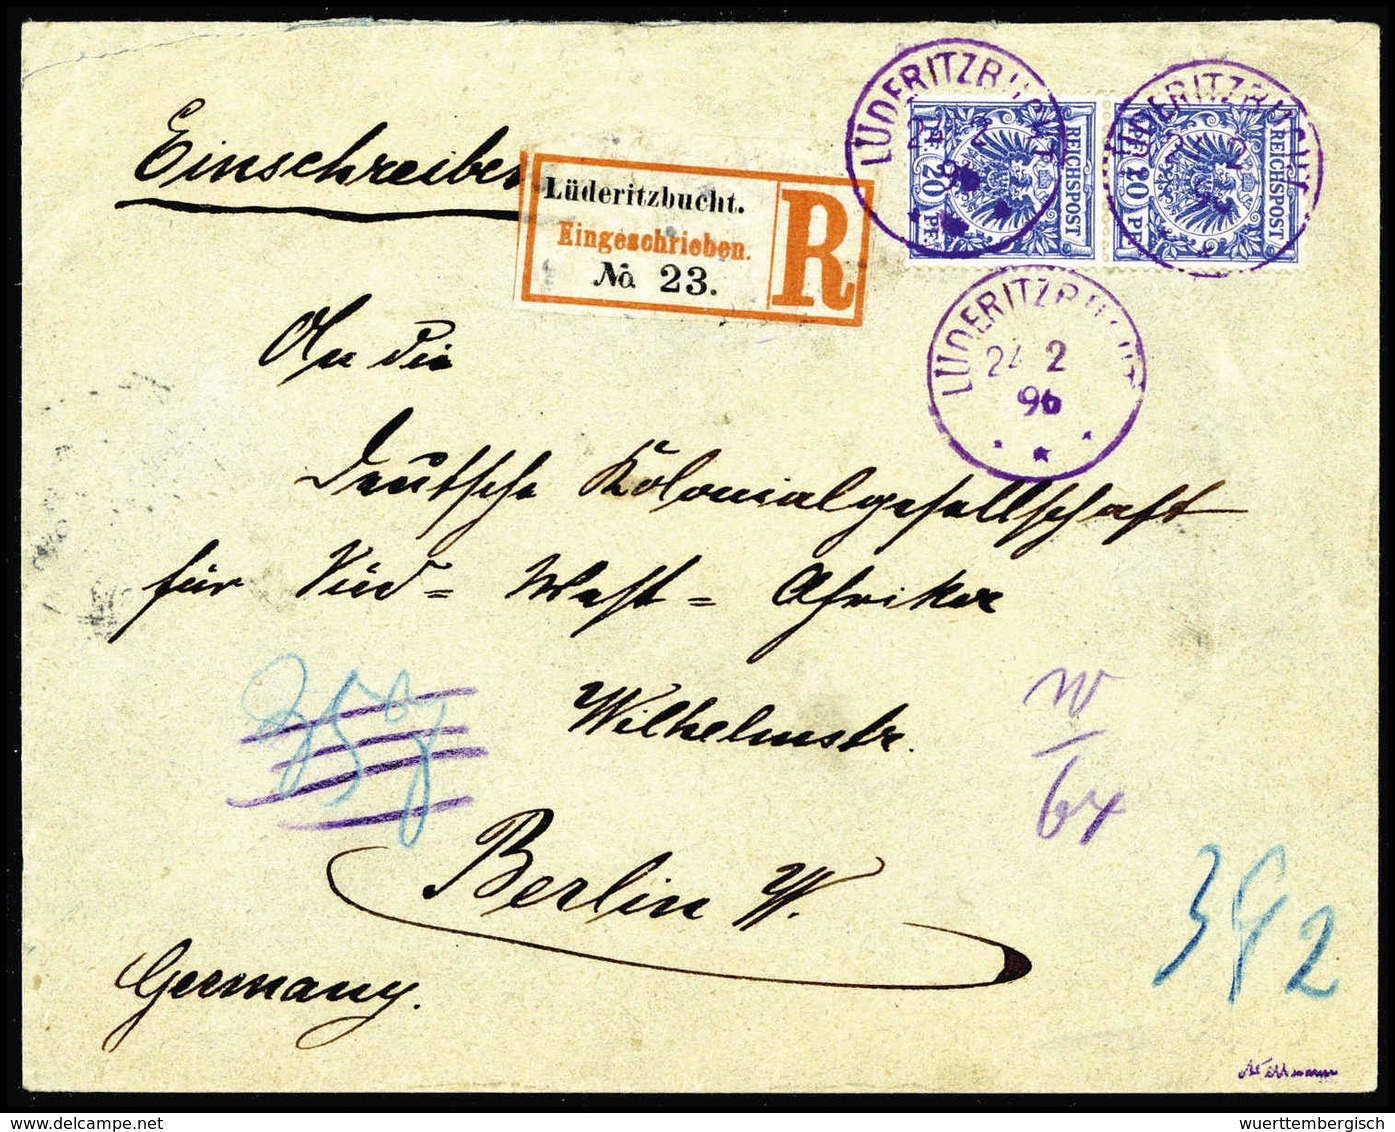 Einschreiben
Lüderitzbucht.
Eingeschrieben.
No. 23.
R
LÜDERITZBUCHT
24 2
96
REICHSPOST
20 PF.
LÜDERITZBUCHT
24 2
96
REICHSPOST
20 PF.
LÜDERITZBUCHT
24 2
96
An die
Deutsche Kolonialgesellschaft
für Süd = West = Afrika
Wilhelmstr.
Berlin W.
Germany.
W
64
392
wuerttembergisch